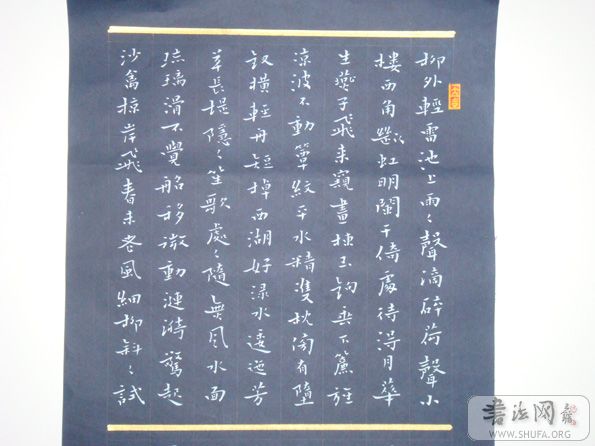 柳外輕雷池上雨々聲滴碎荷聲小
樓西角斷虹明闌干倚處待得月華
生燕子飛來窺畫棟玉鉤垂下簾旌
涼波不動簟紋平水精雙枕傍有墮
釵橫輕舟短棹西湖好淥水逶迤芳
草長堤隱々笙歌處々隨無風水面
琉璃滑不覺船移微動漣漪驚起
沙禽掠岸飛春未老風細柳斜々試
書法网
WWW.SHUFA.ORG